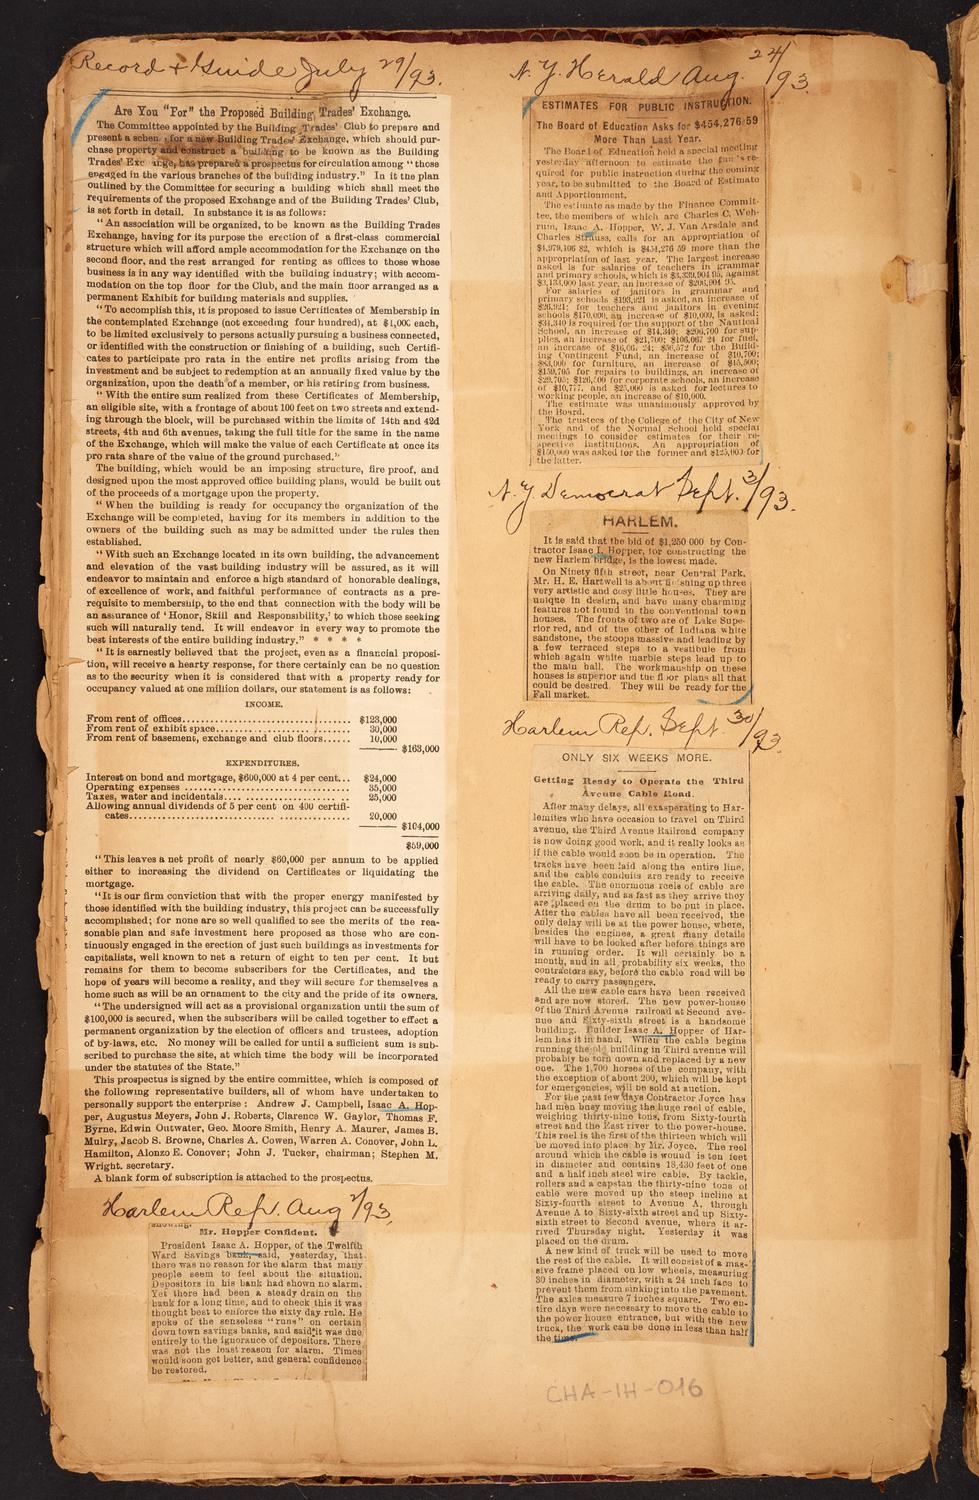 Record & Guide July 29/93.
Are You "For" the Proposed Building Trades' Exchange.
The Committee appointed by the Building Trades' Club to prepare and
present a schem for a new Building Trades' Exchange, which should pur-
chase property and construct a building to be known as the Building
Trades' Exc ange, has prepared a prospectus for circulation among "those
engaged in the various branches of the building industry." In it the plan
outlined by the Committee for securing a building which shall meet the
requirements of the proposed Exchange and of the Building Trades' Club,
is set forth in detail. In substance it is as follows:
"An association will be organized, to be known as the Building Trades
Exchange, having for its purpose the erection of a first-class commercial
structure which will afford ample accommodation for the Exchange on the
second floor, and the rest arranged for renting as offices to those whose
business is in any way identified with the building industry; with accom-
modation on the top floor for the Club, and the main floor arranged as a
permanent Exhibit for building materials and supplies.
"To accomplish this, it is proposed to issue Certificates of Membership in
the contemplated Exchange (not exceeding four hundred), at $1,000 each,
to be limited exclusively to persons actually pursuing a business connected,
or identified with the construction or finishing of a building, such Certifi-
cates to participate pro rata in the entire net profits arising from the
investment and be subject to redemption at an annually fixed value by the
organization, upon the death of a member, or his retiring from business.
"With the entire sum realized from these Certificates of Membership,
an eligible site, with a frontage of about 100 feet on two streets and extend-
ing through the block, will be purchased within the limits of 14th and 42d
streets, 4th and 6th avenues, taking the full title for the same in the name
of the Exchange, which will make the value of each Certificate at once its
pro rata share of the value of the ground purchased."
The building, which would be an imposing structure, fire proof, and
designed upon the most approved office building plans, would be built out
of the proceeds of a mortgage upon the property.
"When the building is ready for occupancy the organization of the
Exchange will be completed, having for its members in addition to the
owners of the building such as may be admitted under the rules then
established.
"With such an Exchange located in its own building, the advancement
and elevation of the vast building industry will be assured, as it will
endeavor to maintain and enforce a high standard of honorable dealings,
of excellence of work, and faithful performance of contracts as a pre-
requisite to membership, to the end that connection with the body will be
an assurance of 'Honor, Skill and Responsibility,' to which those seeking
such will naturally tend. It will endeavor in every way to promote the
best interests of the entire building industry." * * * *
"It is earnestly believed that the project, even as a financial proposi-
tion, will receive a hearty response, for there certainly can be no question
as to the security when it is considered that with a property ready for
occupancy valued at one million dollars, our statement is as follows:
INCOME.
From rent of offices.................. $123,000
From rent of exhibit space.................. 30,000
From rent of basement, exchange and club floors...... 10,000
$163,000
EXPENDITURES.
Interest on bond and mortgage, $600,000 at 4 per cent... $24,000
Operating expenses .................. 35,000
Taxes, water and incidentals.................. 25,000
Allowing annual dividends of 5 per cent on 400 certifi-
cates.................. 20,000
$104,000
$59,000
"This leaves a net profit of nearly $60,000 per annum to be applied
either to increasing the dividend on Certificates or liquidating the
mortgage.
"It is our firm conviction that with the proper energy manifested by
those identified with the building industry, this project can be successfully
accomplished; for none are so well qualified to see the merits of the rea-
sonable plan and safe investment here proposed as those who are con-
tinuously engaged in the erection of just such buildings as investments for
capitalists, well known to net a return of eight to ten per cent. It but
remains for them to become subscribers for the Certificates, and the
hope of years will become a reality, and they will secure for themselves a
home such as will be an ornament to the city and the pride of its owners.
"The undersigned will act as a provisional organization until the sum of
$100,000 is secured, when the subscribers will be called together to effect a
permanent organization by the election of officers and trustees, adoption
of by-laws, etc. No money will be called for until a sufficient sum is sub-
scribed to purchase the site, at which time the body will be incorporated
under the statutes of the State."
This prospectus is signed by the entire committee, which is composed of
the following representative builders, all of whom have undertaken to
personally support the enterprise: Andrew J. Campbell, Isaac A. Hop-
per, Augustus Meyers, John J. Roberts, Clarence W. Gaylor, Thomas F.
Byrne, Edwin Outwater, Geo. Moore Smith, Henry A. Maurer, James B.
Mulry, Jacob S. Browne, Charles A. Cowen, Warren A. Conover, John L.
Hamilton, Alonzo E. Conover; John J. Tucker, chairman; Stephen M.
Wright, secretary.
A blank form of subscription is attached to the prospectus.
Harlem Rep. Aug /93.
Mr. Hopper Confident.
President Isaac A. Hopper, of the Twelfth
Ward Savings bank, said, yesterday, that
there was no reason for the alarm that many
people seem to feel about the situation.
Depositors in his bank had shown no alarm.
Yet there had been a steady drain on the
bank for a long time, and to check this it was
thought best to enforce the sixty day rule. He
spoke of the senseless "runs" on certain
down town savings banks, and said it was due
entirely to the ignorance of depositors. There
was not the least reason for alarm. Times
would soon get better, and general confidence
be restored.
N. Y. Herald Aug. 24/93.
ESTIMATES FOR PUBLIC INSTRUCTION.
The Board of Education Asks for $454,276 59
More Than Last Year.
The Board of Education held a special meeting
yesterday afternoon to estimate the fun 's re-
quired for public instruction during the coming
year, to be submitted to the Board of Estimate
and Apportionment.
The estimate as made by the Finance Commit-
tee, the members of which are Charles C. Weh-
rum, Isaac A. Hopper, W. J. Van Arsdale and
Charles Strauss, calls for an appropriation of
$4,979,106 82, which is $454,276 59 more than the
appropriation of last year. The largest increase
asked is for salaries of teachers in grammar
and primary schools, which is $3,339,904 95, against
$3,133,000 last year, an increase of $206,904 95.
For salaries of janitors in grammar and
primary schools $193,921 is asked, an increase of
$26,921; for teachers and janitors in evening
schools $170,000, an increase of $10,000, is asked;
$34,340 is required for the support of the Nautical
School, an increase of $14,340; $206,700 for sup-
plies, an increase of $21,700; $106,067 24 for fuel,
an increase of $16,067 24; $56,572 for the Build-
ing Contingent Fund, an increase of $10,700;
$83,000 for furniture, an increase of $45,500;
$159,705 for repairs to buildings, an increase of
$29,705; $126,500 for corporate schools, an increase
of $10,777, and $25,000 is asked for lectures to
working people, an increase of $10,000.
The estimate was unanimously approved by
the Board.
The trustees of the College of the City of New
York and of the Normal School held special
meetings to consider estimates for their re-
spective institutions. An appropriation of
$150,000 was asked for the former and $125,000 for
the latter.
N. Y. Democrat Sept. 3/93.
HARLEM.
It is said that the bid of $1,250 000 by Con-
tractor Isaac I. Hopper, for constructing the
new Harlem bridge, is the lowest made.
On Ninety fifth street, near Central Park,
Mr. H. E. Hartwell is about finishing up three
very artistic and cosy little houses. They are
unique in design, and have many charming
features not found in the conventional town
houses. The fronts of two are of Lake Supe-
rior red, and of the other of Indiana white
sandstone, the stoops massive and leading by
a few terraced steps to a vestibule from
which again white marble steps lead up to
the main hall. The workmanship on these
houses is superior and the floor plans all that
could be desired. They will be ready for the
Fall market.
Harlem Rep. Sept. 30/93.
ONLY SIX WEEKS MORE.
Getting Ready to Operate the Third
Avenue Cable Road.
After many delays, all exasperating to Har-
lemites who have occasion to travel on Third
avenue, the Third Avenue Railroad company
is now doing good work, and it really looks as
if the cable would soon be in operation. The
tracks have been laid along the entire line,
and the cable conduits are ready to receive
the cable. The enormous reels of cable are
arriving daily, and as fast as they arrive they
are placed on the drum to be put in place.
After the cables have all been received, the
only delay will be at the power house, where,
besides the engines, a great many details
will have to be looked after before things are
in running order. It will certainly be a
month, and in all probability six weeks, the
contractors say, before the cable road will be
ready to carry passengers.
All the new cable cars have been received
and are now stored. The new power-house
of the Third Avenue railroad at Second ave-
nue and Sixty-sixth street is a handsome
building. Builder Isaac A. Hopper of Har-
lem has it in hand. When the cable begins
running the old building in Third avenue will
probably be torn down and replaced by a new
one. The 1,700 horses of the company, with
the exception of about 200, which will be kept
for emergencies, will be sold at auction.
For the past few days Contractor Joyce has
had men busy moving the huge reel of cable,
weighing thirty-nine tons, from Sixty-fourth
street and the East river to the power-house.
This reel is the first of the thirteen which will
be moved into place by Mr. Joyce. The reel
around which the cable is wound is ten feet
in diameter and contains 18,430 feet of one
and a half inch steel wire cable. By tackle,
rollers and a capstan the thirty-nine tons of
cable were moved up the steep incline at
Sixty-fourth street to Avenue A, through
Avenue A to Sixty-sixth street and up Sixty-
sixth street to Second avenue, where it ar-
rived Thursday night. Yesterday it was
placed on the drum.
A new kind of truck will be used to move
the rest of the cable. It will consist of a mas-
sive frame placed on low wheels, measuring
30 inches in diameter, with a 24 inch face to
prevent them from sinking into the pavement.
The axles measure 7 inches square. Two en-
tire days were necessary to move the cable to
the power house entrance, but with the new
truck, the work can be done in less than half
the time.
CHA-IH-016